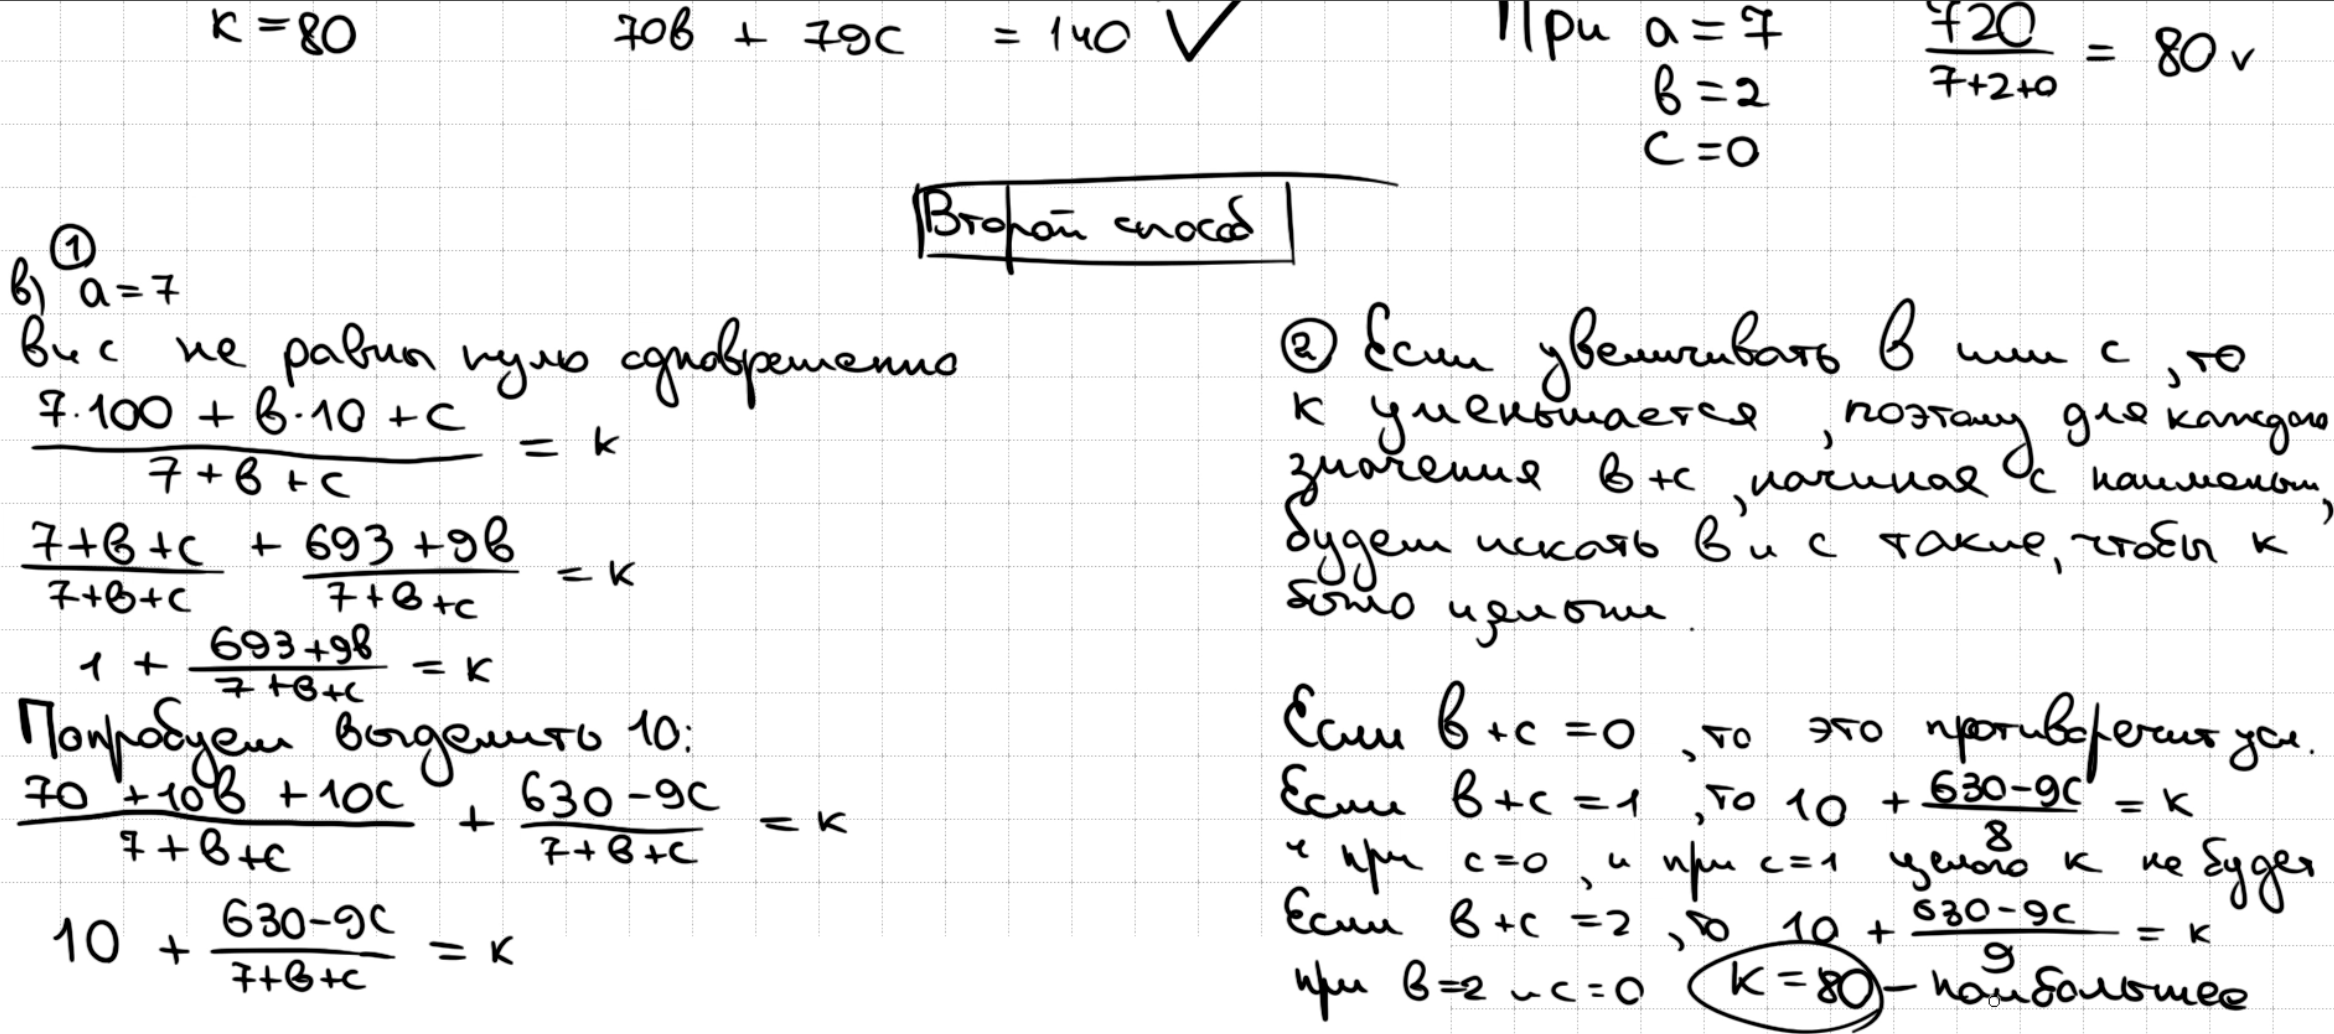 к = 80
70в + 79с = 140 ✓
При а = 7
в = 2
с = 0
720 / 7+2+0 = 80 v
Второй способ
①
в) а = 7
в и с не равны нулю одновременно
7·100 + в·10 + с / 7 + в + с = к
7+в+с / 7+в+с + 693 + 9в / 7+в+с = к
1 + 693+9в / 7+в+с = к
Попробуем выделить 10:
70 + 10в + 10с / 7+в+с + 630 - 9с / 7+в+с = к
10 + 630-9с / 7+в+с = к
② Если увеличивать в или с, то
к уменьшается, поэтому для каждого
значения в+с, начиная с наименьш,
будем искать в и с такие, чтобы к
было целым.
Если в+с = 0, то это противоречит усл.
Если в+с = 1, то 10 + 630-9с / 8 = к
и при с=0, и при с=1 целого к не будет
Если в+с = 2, то 10 + 630-9с / 9 = к
при в=2 и с=0 к = 80 - наибольшее